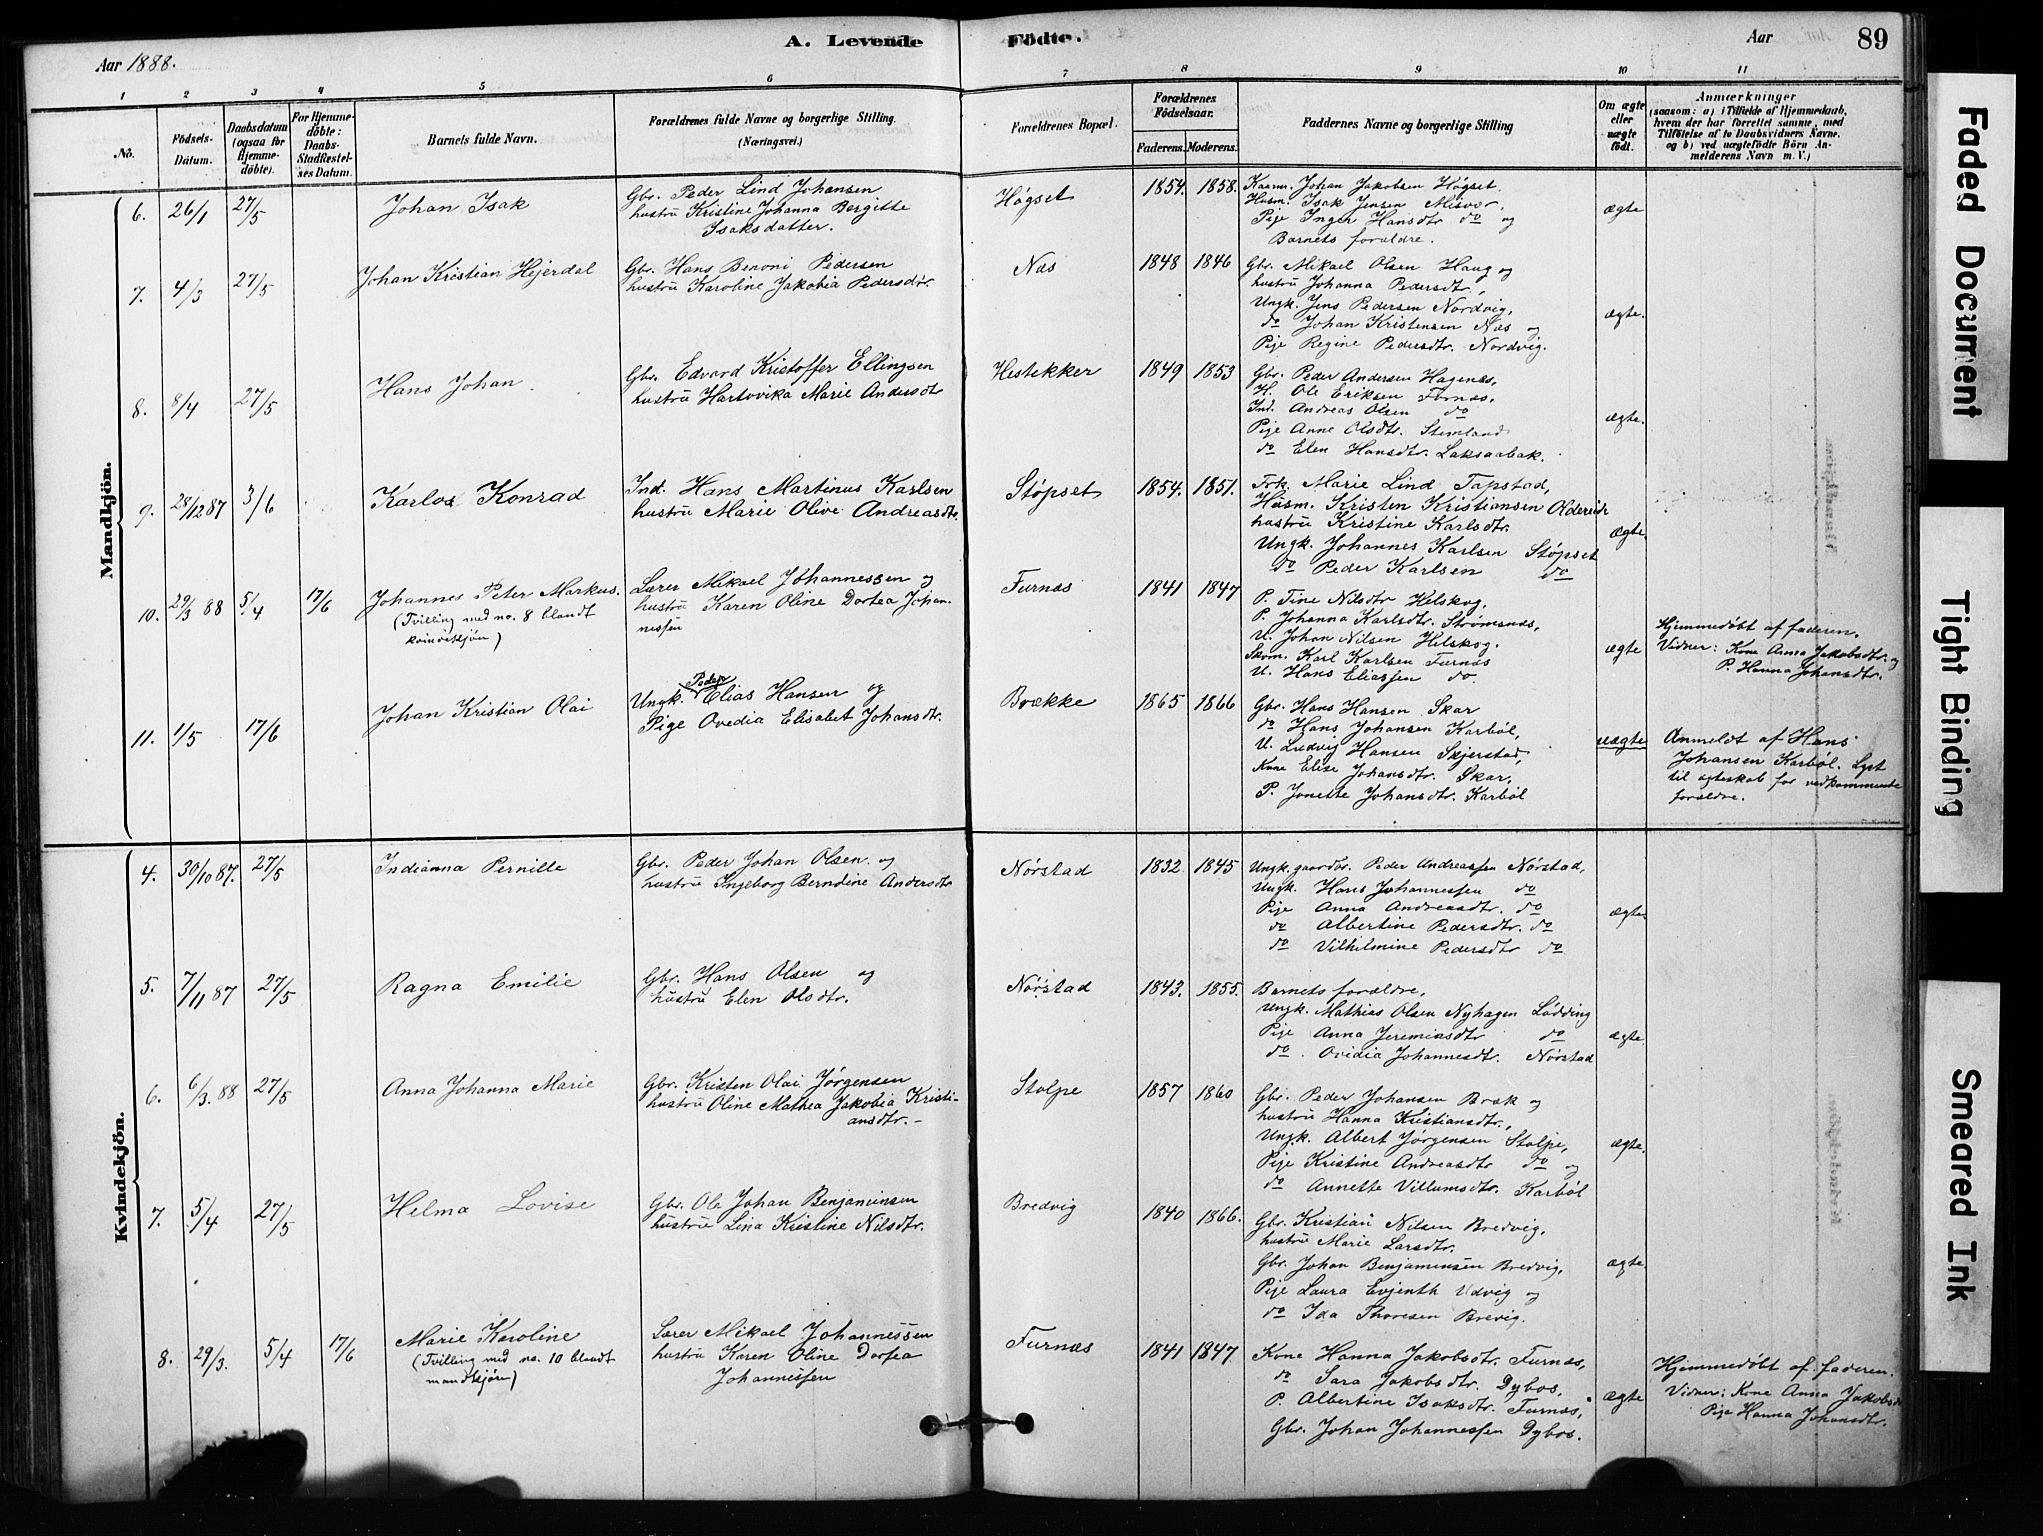 A. Levende Födte.
Aar 1888.
Aar
89
1 2 3 4 5 6 7 8 9 10 11
No.
Födsels-Datum.
Daabsdatum (ogsaa for Hjemmedøbte).
For Hjemmedöbte: Daabs-Stadfæstelses Datum.
Barnets fulde Navn.
Forældrenes fulde Navne og borgerlige Stilling. (Næringsvei.)
Forældrenes Bopæl.
Forældrenes Födselsaar.
Faderens. Moderens.
Faddernes Navne og borgerlige Stilling
Om ægte eller uægte födt.
Anmærkninger
(saasom: a) i Tilfælde af Hjemmedaab, hvem der har forrettet samme, med Tilföielse af to Daabsvidners Navne, og b) ved uægtefödte Börn Anmelderens Navn m. V.)
Mandkjön.
6. 26/1 27/5 Johan Isak
Gbr. Peder Lind Johansen
hustru Kristine Johanna Bergitte
Isaksdatter.
Høgset 1854. 1858.
Kaarm. Johan Jakobsen Høgset.
Husm. Isak Jensen Misvær.
Pije Inger Hansdtr do og
Barnets forældre.
ægte
7. 4/3 27/5 Johan Kristian Hejerdal
Gbr. Hans Benoni Pedersen
hustru Karoline Jakobia Pedersdtr.
Næs 1848 1846
Gbr. Mikael Olsen Haug og
hustru Johanna Pedersdtr,
Ungk. Jens Pedersen Nordvig,
do Johan Kristensen Næs og
Pije Regine Pedersdtr. Nordvig.
ægte.
8. 8/4 27/5 Hans Johan.
Gbr. Edvard Kristoffer Ellingsen
hustru Hartvika Marie Andersdtr
Hestekker 1849 1853
Gbr. Peder Andersen Hagenæs,
H. Ole Eriksen Fornæs.
Ind. Andreas Olsen do
Pije Anne Olsdtr. Stemland
do Elen Hansdtr. Laksaabak.
ægte.
9. 28/12 87 3/6 Karlos Konrad
Ind. Hans Martinus Karlsen
hustru Marie Olive Andreasdtr.
Støpset 1854. 1851.
Frk. Marie Lind Tapstad,
Husm. Kristen Kristiansen
hustru Kristine Karlsdtr.
Ungk. Johannes Karlsen Støpset
do Peder Karlsen do
Ægte.
10. 29/3 88 5/4 17/6 Johannes Peter Markus.
(Tvilling med no. 8 blandt
kvindekjøn)
Lærer Mikael Johannessen og
hustru Karen Oline Dortea Johan-
nissen
Furnæs 1841 1847
P. Tine Nilsdtr Helskog,
P. Johanna Karlsdtr. Strømsnæs,
U. Johan Nilsen Helskog.
Skom. Karl Karlsen Furnæs
U. Hans Eliassen do.
ægte
Hjemmedøbt af faderen.
Vidner: Kone Anna Jakobsdtr. og
P. Hanna Johansdtr.
11. 1/5 17/6 Johan Kristian Olai
Peder
Ungk. Elias Hansen og
Pige Ovedia Elisabet Johansdtr.
Brække 1865 1866
Gbr. Hans Hansen Skar
do Hans Johansen Karbøl,
U. Ludvig Hansen Skjerstad,
Kone Elise Johansdtr. Skar,
P. Jonette Johansdtr. Karbøl
uægte
Anmeldt af Hans
Johansen Karbøl. Lyst
til ægteskab for vedkommende
forældre.
Kvindekjön.
4. 30/10 87. 27/5 Indianna Pernille
Gbr. Peder Johan Olsen og
hustru Ingeborg Berndine Andersdtr
Nørstad 1832 1845
Ungk. gaardbr. Peder Andreassen Nørstad,
Ungk. Hans Johannessen do
Pije Anna Andreasdtr. do
do Albertine Pedersdtr. do
do Vilhelmine Pedersdtr do
ægte.
5. 7/11 87 27/5 Ragna Emilie
Gbr. Hans Olsen og
hustru Elen Olsdtr.
Nørstad 1843. 1855.
Barnets forældre,
Ungk. Mathias Olsen Nyhagen Lødding
Pije Anna Jeremiasdtr do
do. Ovidia Johannesdtr. Nørstad
ægte.
6. 6/3. 88 27/5 Anna Johanna Marie
Gbr. Kristen Olai Jørgensen
hustru Oline Mathea Jakobia Kristi-
ansdtr.-
Stolpe 1857 1860
Gbr. Peder Johansen Bræk og
hustru Hanna Kristiansdtr.,
Ungk. Albert Jørgensen Stolpe,
Pije Kristine Andreasdtr do og
do Annette Villumsdtr. Karbøl
ægte.
7. 5/4 27/5 Helma Lovise
Gbr. Ole Johan Benjaminsen
hustru Lina Kristine Nilsdtr.
Bredvig 1840 1866.
Gbr. Kristian Nilsen Bredvig,
hustru Marie Larsdtr.
Gbr. Johan Benjaminsen Bredvig,
Pije Laura Evjenth Udvig og
do Ida Thoresen Brevig.
ægte.
8. 29/3. 5/4 17/6 Marie Karoline
(Tvilling med no. 10 blandt
mandkjøn)
Lærer Mikael Johannessen
hustru Karen Oline Dortea
Johannessen
Furnæs 1841 1847
Kone Hanna Jakobsdtr. Furnæs,
do Sara Jakobsdtr. Dybos,
P. Albertine Isaksdtr. Furnæs,
Gbr. Johan Johannessen Dybos.
ægte
Hjemmedøbt af faderen.
Vidner: Kone Anna Jakobsd
Pije Hanna Johansdtr.
Faded Document
Tight Binding
Smeared Ink